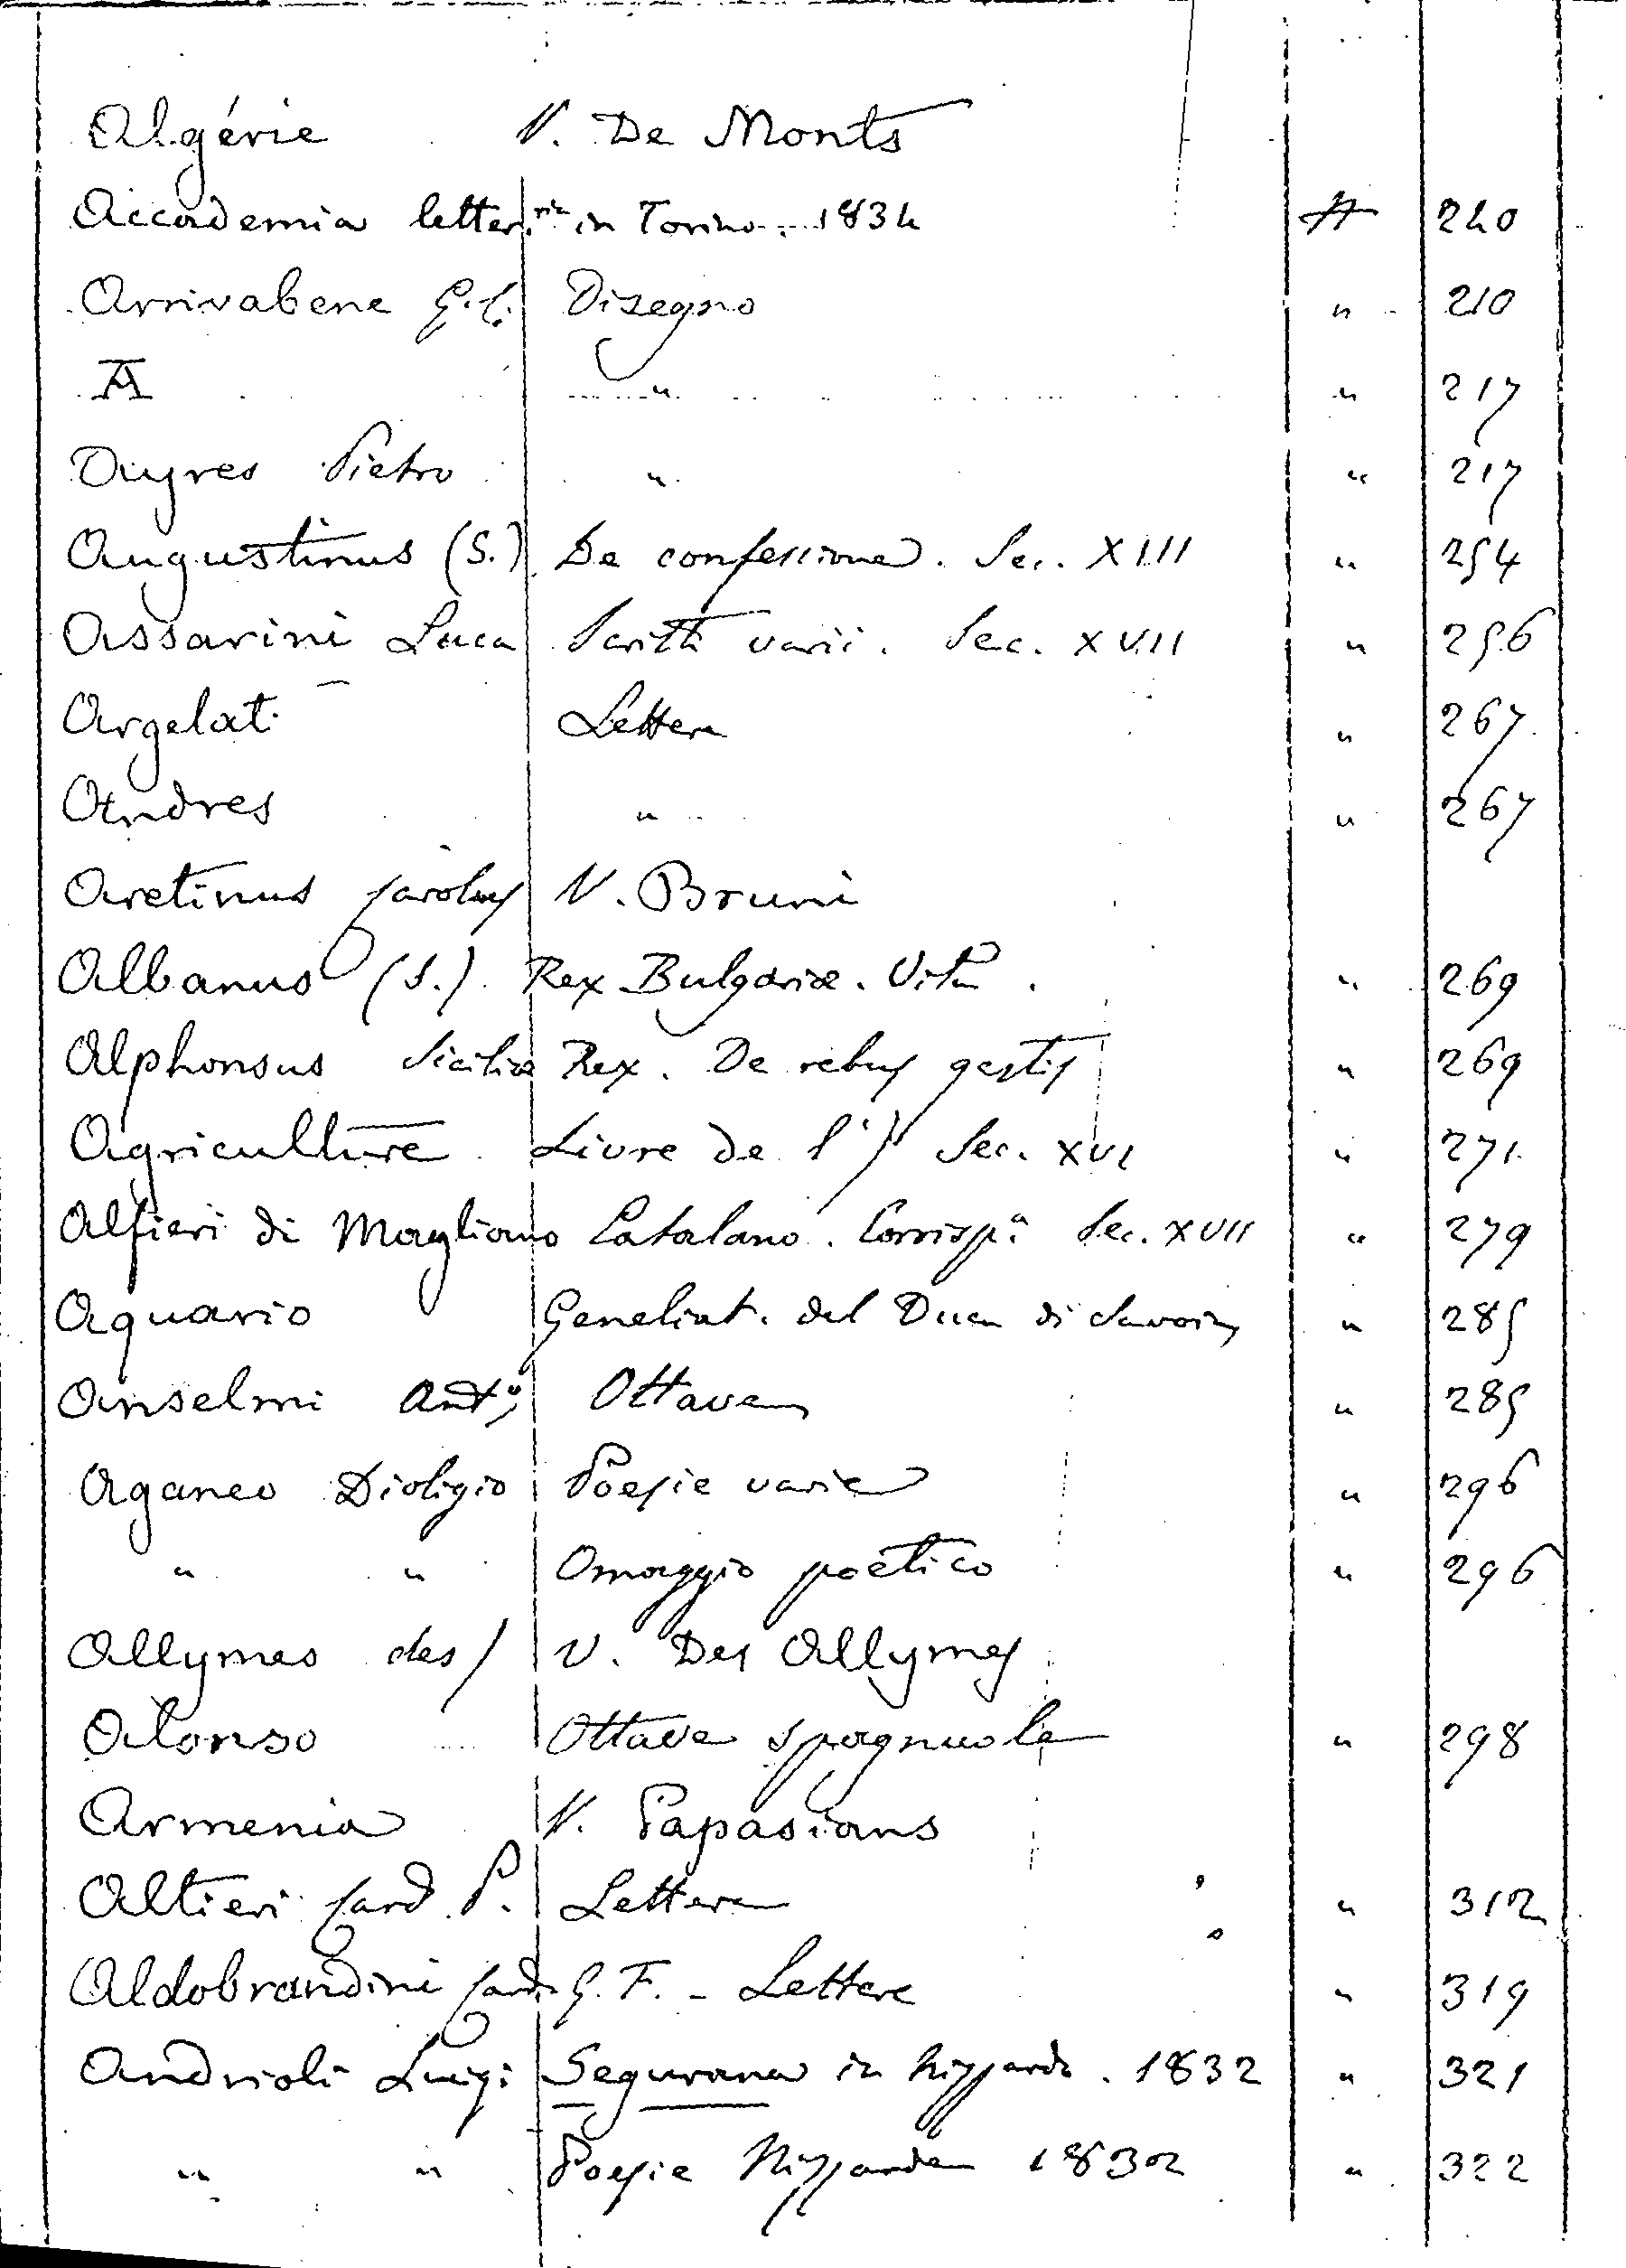 Algérie V. De Monts
Accademia letter.ria in Torino. 1834 A 240
Arrivabene G. C. Disegno " 210
A " " 217
Ayres Pietro " " 217
Augustinus (S.) De confessione. Sec. XIII " 254
Assarini Luca Scritti varii. Sec. XVII " 256
Argelati Lettera " 267
Andres " " 267
Aretinus Carolus V. Bruni
Albanus (S.) Rex Bulgariæ. Vita. " 269
Alphonsus Siciliæ Rex. De rebus gestis " 269
Agriculture Livre de l') Sec. XVI " 271
Alfieri di Magliano Catalano. Corrisp.a Sec. XVII " 279
Aquario Genetliat. del Duca di Savoia " 285
Anselmi Ant.o Ottave " 285
Aganeo Dioligio Poesie varie " 296
" " Omaggio poetico " 296
Allymes des) V. Des Allymes
Alonso Ottave spagnuole " 298
Armenia V. Papasians
Altieri Card P. Lettera " 312
Aldobrandini Card. G. F. - Lettere " 319
Andrioli Luigi Segurana in Nizzardo. 1832 " 321
" " Poesie Nizzarde 1830 " 322